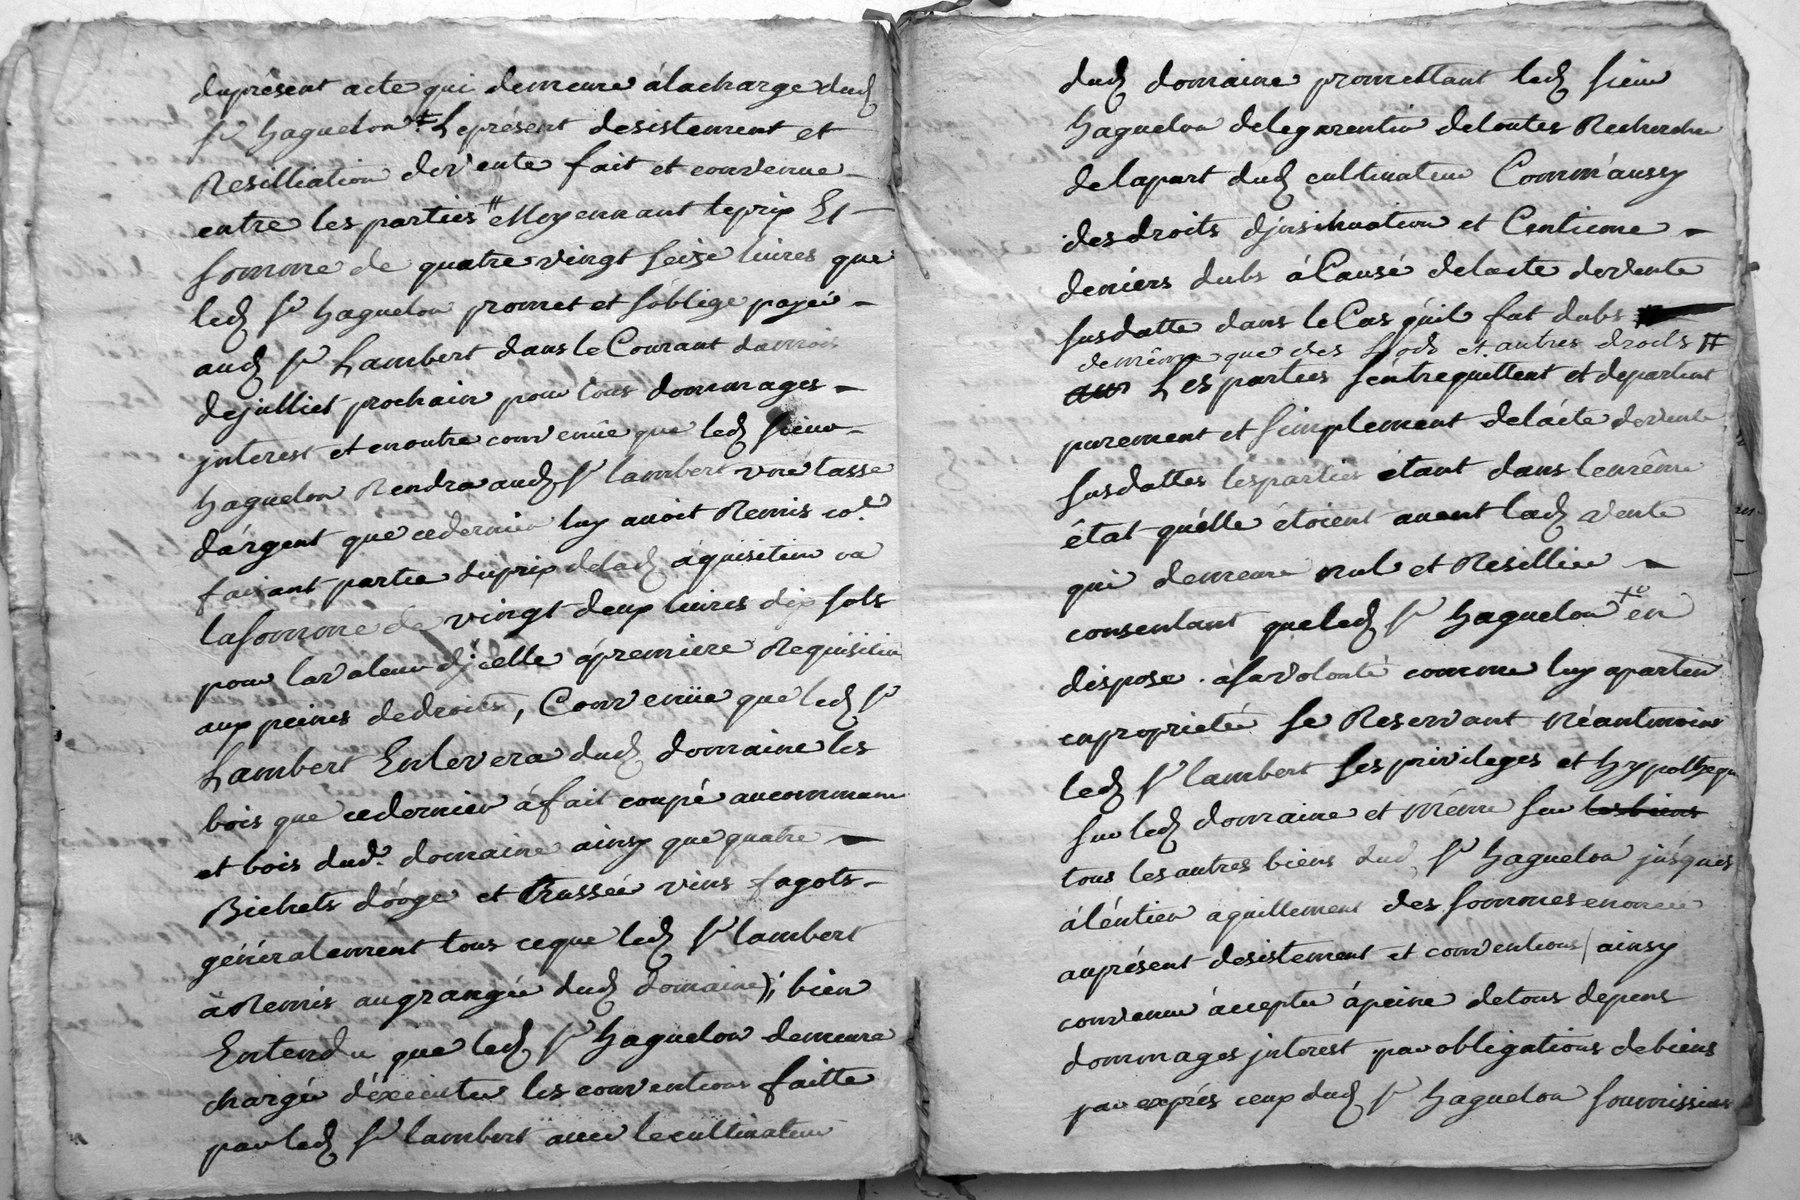 duprésent acte qui demeure álacharge dud
sr haguelon # Leprésent desistement et
Resilliation devente fait et convenue
entre les parties # Moyennant leprix Et
somme de quatre vingt seize livres que
led sr haguelon promet et soblige payér
aud sr Lambert dans le Courant dumois
dejulliet prochain pour tous dommages
jnterest et enoutre convenüe que led sieur
haguelon Rendra aud sr lambert une tasse
dárgent que cedernier luy avoit Remis
faisant partie duprix delad áquisition ou
lasomme de vingt deux livres dix sols
pour lavaleur djcelle ápremiere Requisition
aux peines dedroits, Convenüe que led sr
Lambert Enlevera dud domaine les
bois que cedernier á fait coupé
et bois dud. domaine ainsy que quatre
Bichets dórge et vins fagots
généralement tous ceque led sr lambert
á Remis augrangée dud domaine); bien
Entendu que led sr haguelon demeure
chargée déxécuter les conventions faitte
par led sr lambert avec lecultivateur
dud domaine promettant led sieur
haguelon delegarentir detoutes Recherches
delapart dud cultivateur Comm'aussy
des droits djnsinuation et Centieme
deniers dubs á Causé delacte devente
susdatte dans le Cas quil fut dubs
demême que des Lods et autres droits #
Les parties séntrequittent et departent
purement et simplement delácte devente
susdattes lesparties étant dans lemême
état quélle étoient avant lad vente
qui demeure nul et Resilliée
consentant queled sr haguelon en
dispose ásavolonté comme luy aparten
enpropriété se Reservant Néantmoins
led sr lambert ses privileges et hypotheque
sur led domaine et même sur les biens
tous les autres biens dud sr haguelon júsques
áléntier aquillement des sommes enoncée
auprésent desistement et conventions / ainsy
convenu áccepté ápeine detous depens
dommages jnterest par obligations debiens
par exprés ceux dud sr haguelon soumissions